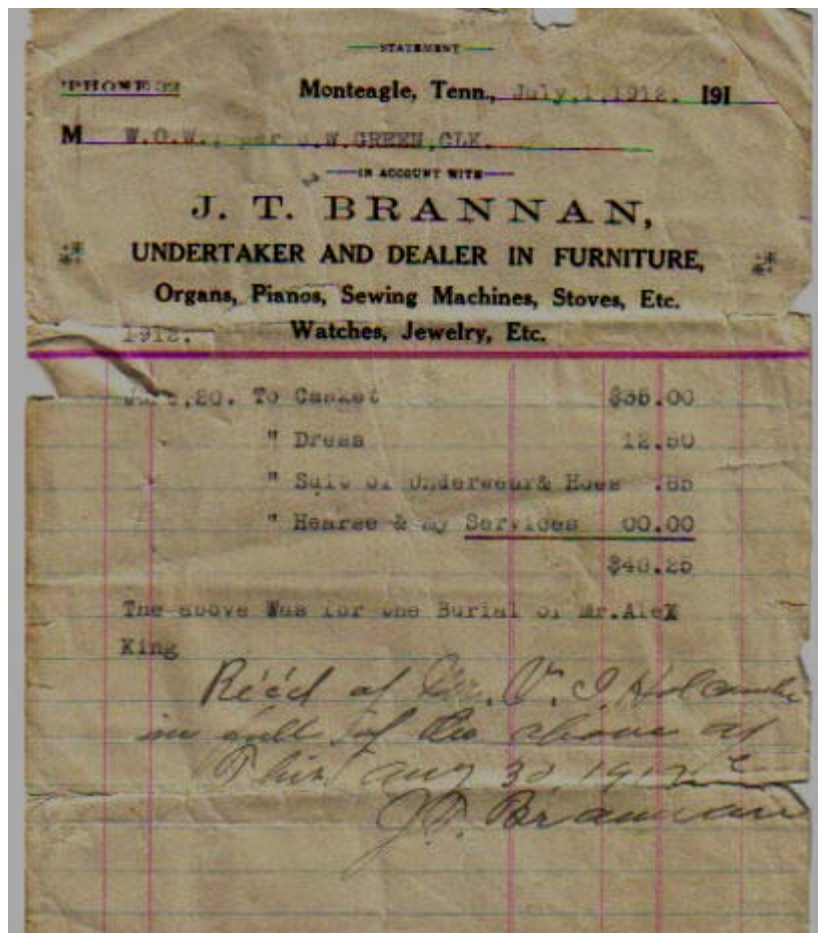 STATEMENT
'PHONE
Monteagle, Tenn., July,1,1912. 191
M W.O.W., per J.W.GREEN,CLK.
IN ACCOUNT WITH
J. T. BRANNAN,
UNDERTAKER AND DEALER IN FURNITURE,
Organs, Pianos, Sewing Machines, Stoves, Etc.
1912. Watches, Jewelry, Etc.
20. To Casket $35.00
" Dress 12.50
" Suit of Underwear& Hoes .85
" Hearse & my Services 00.00
$48.25
The above Was for the Burial of Mr.Alex
King
Re'c'd of V. I. Holcombe
in full of the above at
This Aug 30 1912
J.T. Brannan